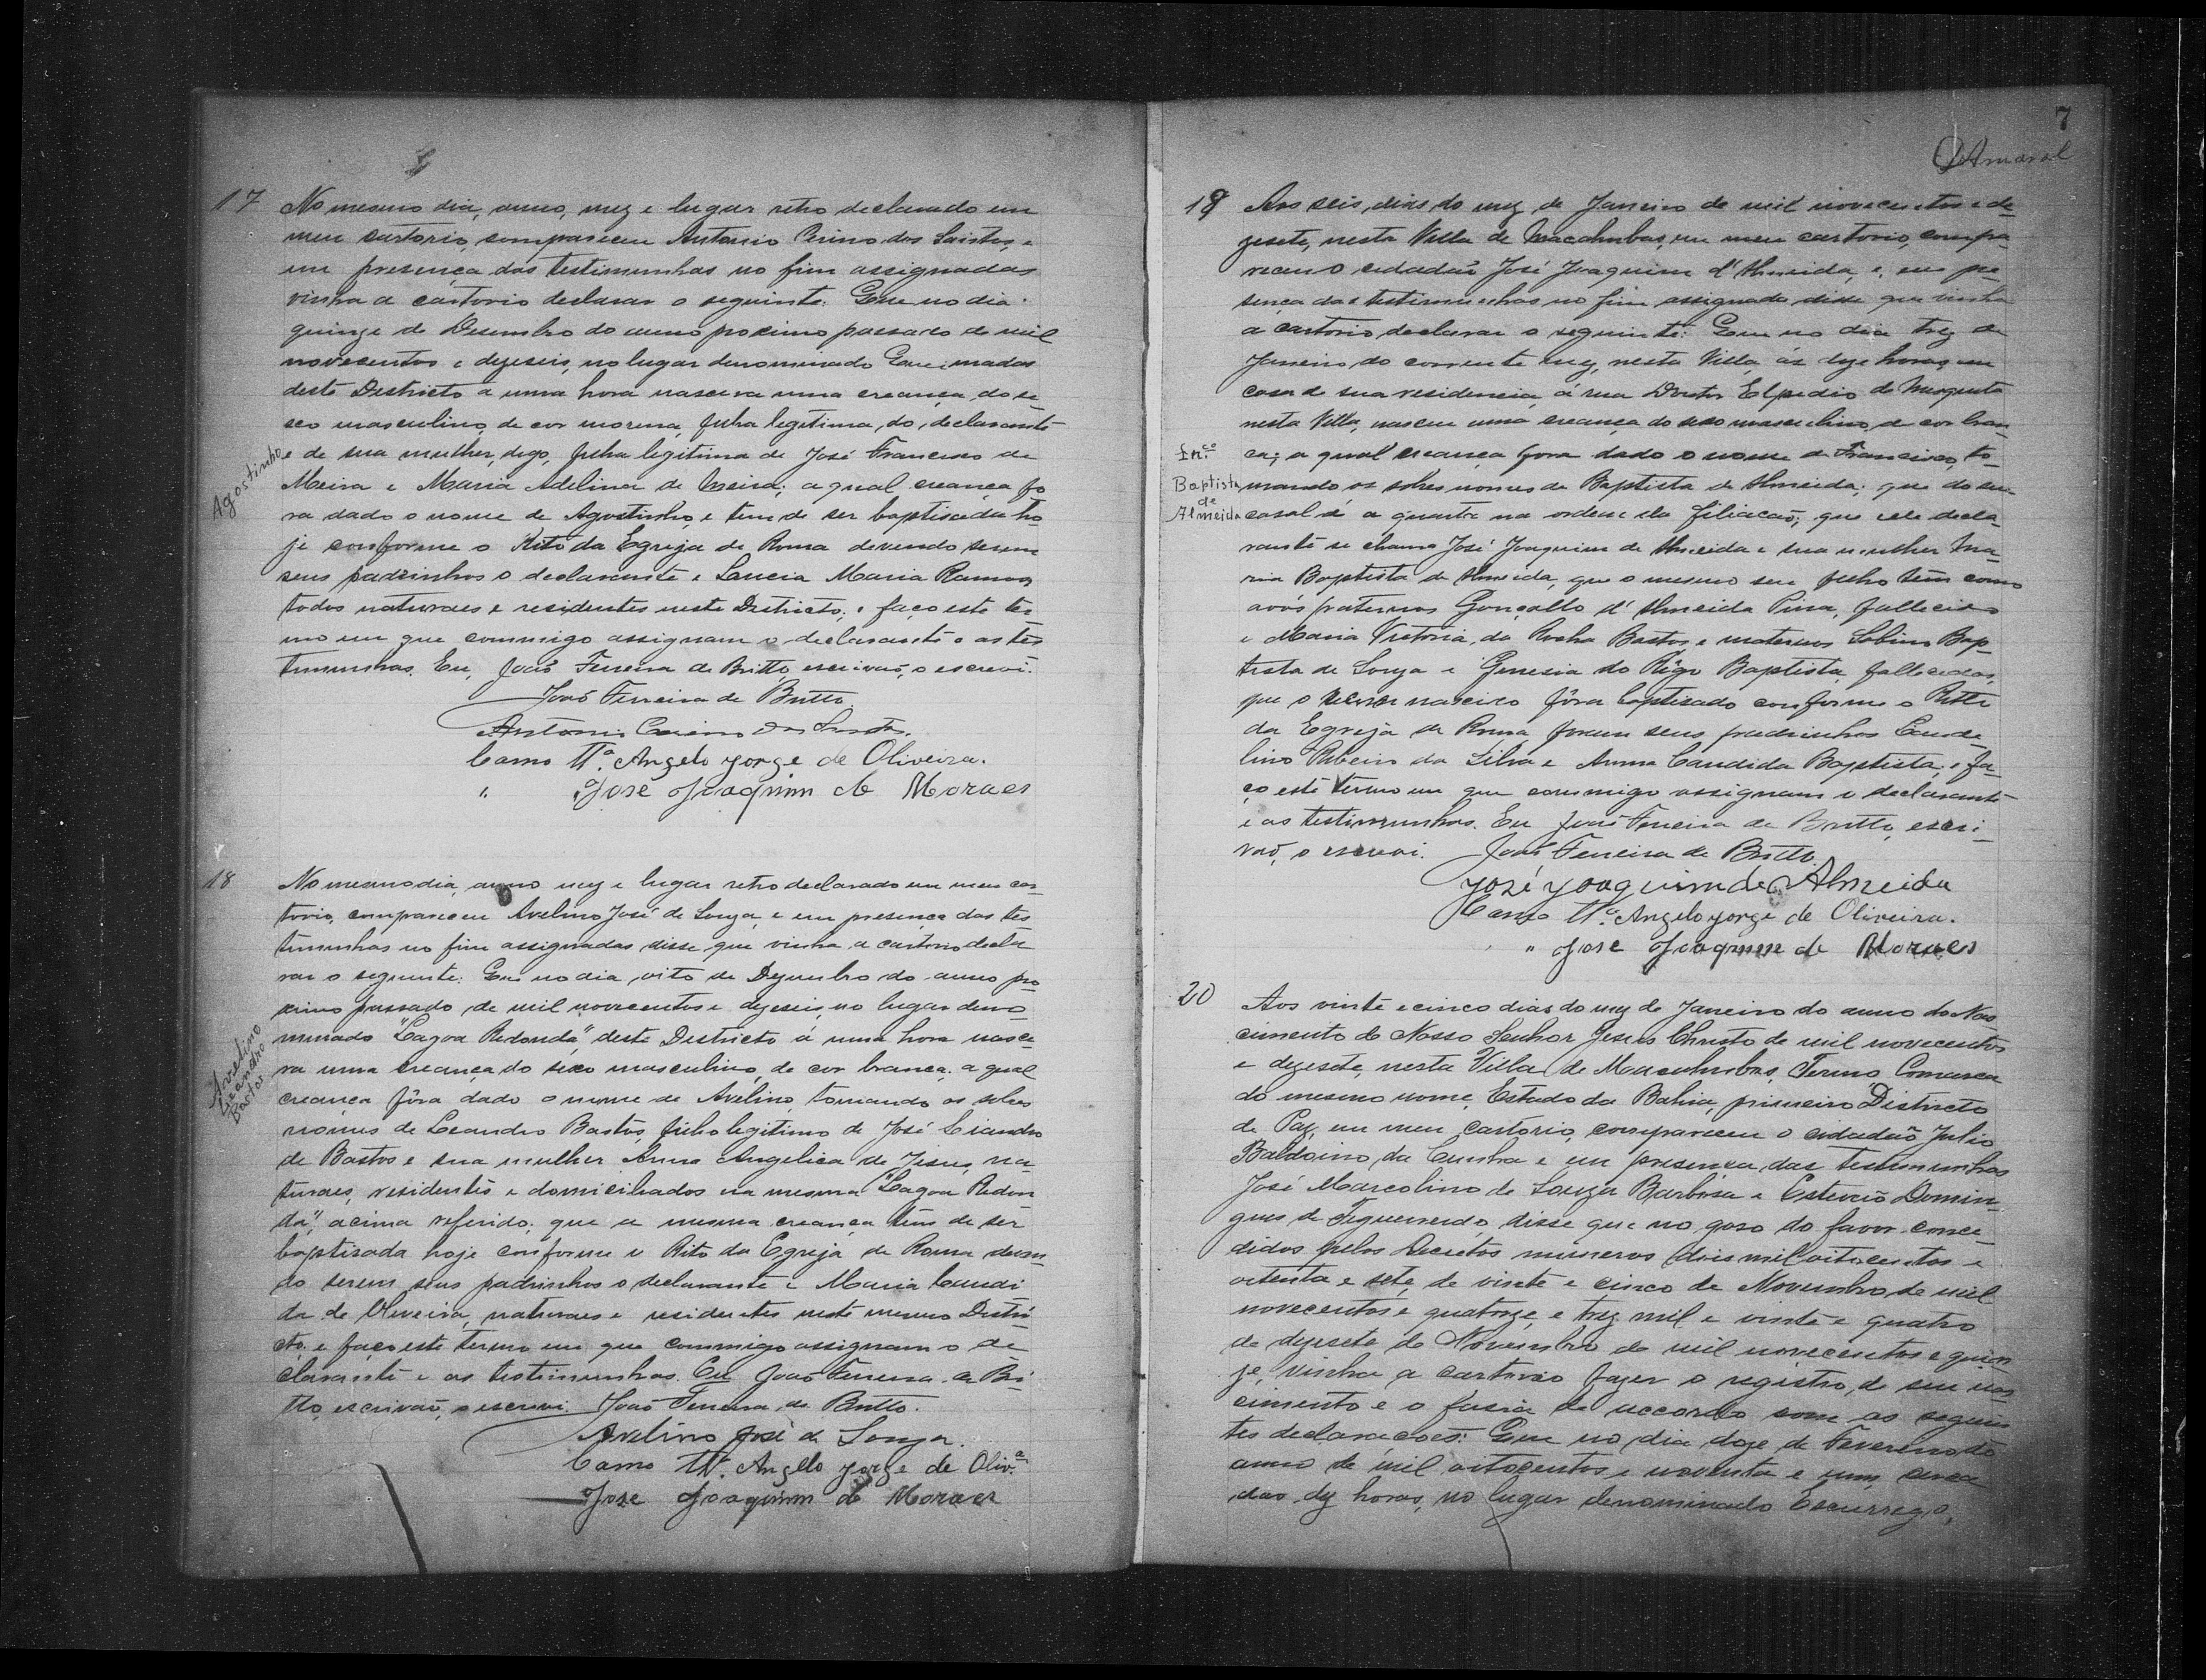 17 No mesmo dia, anno, mez e lugar retro declarado em
meu cartorio, compareceu Antonio Cirino dos Santos, e
em presença das testimunhas no fim assignadas
vinha a cartorio declarar o seguinte: Que no dia
quinze de Desembro do anno proximo passado de mil
novecentos e dezeseis, no lugar denominado Queimadas
deste Districto a uma hora nascera uma creança do se-
xo masculino, de cor morena, filha legitima, do, declarante
Agostinho
e de sua mulher, digo, filha legitima de José Francisco de
Meira e Maria Adelina de Meira; a qual creança fo
ra dado o nome de Agostinho, e tem de ser baptisada ho
je conforme o Rito da Egreja de Roma devendo serem
seus padrinhos o declarante e Laucia Maria Ramos
todos naturaes e residentes neste Districto; e faço este ter
mo em que commigo assignam o declarante e as tes
timunhas. Eu, João Ferreira de Britto, escrivaõ, o escrevi.
João Ferreira de Britto.
Antonio Cirino dos Santos.
Como Tª. Angelo Jorge de Oliveira.
" José Joaquim de Moraes
18 No mesmo dia, anno mez e lugar retro declarado em meu car
torio, compareceu Avelino José de Souza, e em presença das tes
timunhas no fim assignadas disse que vinha a cartorio decla
rar o seguinte: Que no dia oito de Dezembro do anno pro
ximo passado de mil novecentos e dezeseis, no lugar deno
minado "Lagoa Redonda", deste Districto á uma hora nasce-
Avelino
Leandro
Bastos
ra uma creança do sexo masculino, de cor branca; a qual
creança fôra dado o nome de Avelino, tomando os sobre
nomes de Leandro Bastos, filho legitimo de José Leandro
de Bastos e sua mulher Anna Angelica de Jesus, na-
turaes, residentes e domiciliados na mesma "Lagoa Redon
da", acima referido; que a mesma creança tem de ser
baptisada hoje conforme o Rito da Egreja de Roma deven-
do serem seus padrinhos o declarante e Maria Candi
da de Oliveira, naturaes e residentes neste mesmo Distri
cto; e faço este termo em que commigo assignam o de
clarante e as testimunhas. Eu João Ferreira de Bri-
tto, escrivaõ, o escrevi. João Ferreira de Britto.
Avelino José de Souza.
Como Tª. Angello Jorge de Olivª.
José Joaquim de Moraes
7
Amaral
19 Aos seis dias do mez de Janeiro de mil novecentos e de-
zesete, nesta Villa de Macahubas, em meu cartorio, compa-
receu o cidadaõ José Joaquim d'Almeida, e, em pre-
sença das testimunhas no fim assignada disse que vinha
a cartorio declarar o seguinte: Que no dia trez de
Janeiro do corrente mez, nesta Villa, ás doze horas, em
casa de sua residencia, á rua Doutor Elpedio de Mesquita
nesta Villa, nasceu uma creança do sexo masculino, de cor bran-
Frco.
Baptista
de
Almeida
ca; a qual creança fora dado o nome de Francisco, to-
mando os sobre nomes de Baptista de Almeida; que do seu
casal é a quarta na ordem da filiacaõ; que ele decla-
rante se chama José Joaquim de Almeida e sua mulher Ma-
ria Baptista de Almeida, que o mesmo seu filho tem como
avós paternos Gonçallo d'Almeida Pina, fallecido
e Maria Victoria da Rocha Bastos, e maternos Sabino Bap-
tista de Souza e Genesia do Rêgo Baptista, fallecidos,
que o recem nascido fôra baptisado conforme o Ritto
da Egreja de Roma foram seus padrinhos Cande-
lino Ribeiro da Silva e Anna Candida Baptista; e fa-
ço este termo em que commigo assignam o declarante
e as testimunhas. Eu João Ferreira de Britto, escri-
vaõ, o escrevi. João Ferreira de Britto.
José Joaquim de Almeida
Como Tª. Angelo Jorge de Oliveira.
" José Joaquim de Moraes
20 Aos vinte e cinco dias do mez de Janeiro do anno do Nas
cimento de Nosso Senhor Jesus Christo de mil novecentos
e dezesete, nesta Villa de Macahubas, Termo, Comarca
do mesmo nome, Estado da Bahia, primeiro Districto
de Paz, em meu cartório, compareceu o cidadaõ Julio
Baldoino da Cunha e em presença das testimunhas
José Marcolino de Souza Barbosa e Estevaõ Domin-
gues de Figueiredo, disse que no goso do favor conce-
didos pelos Decretos numeros dois mil oitocentos e
oitenta e sete, de vinte e cinco de Novembro de mil
novecentos e quatorze, e trez mil e vinte e quatro
de dezesete de Novembro de mil novecentos e quin
ze, vinha a cartorio fazer o registro, de seu nas
cimento e o fasia de accordo com as seguin
tes declaracoes: Que no dia doze de Fevereiro do
anno de mil oitocentos e noventa e um, cerca
das dez horas, no lugar denominado Escurrego,